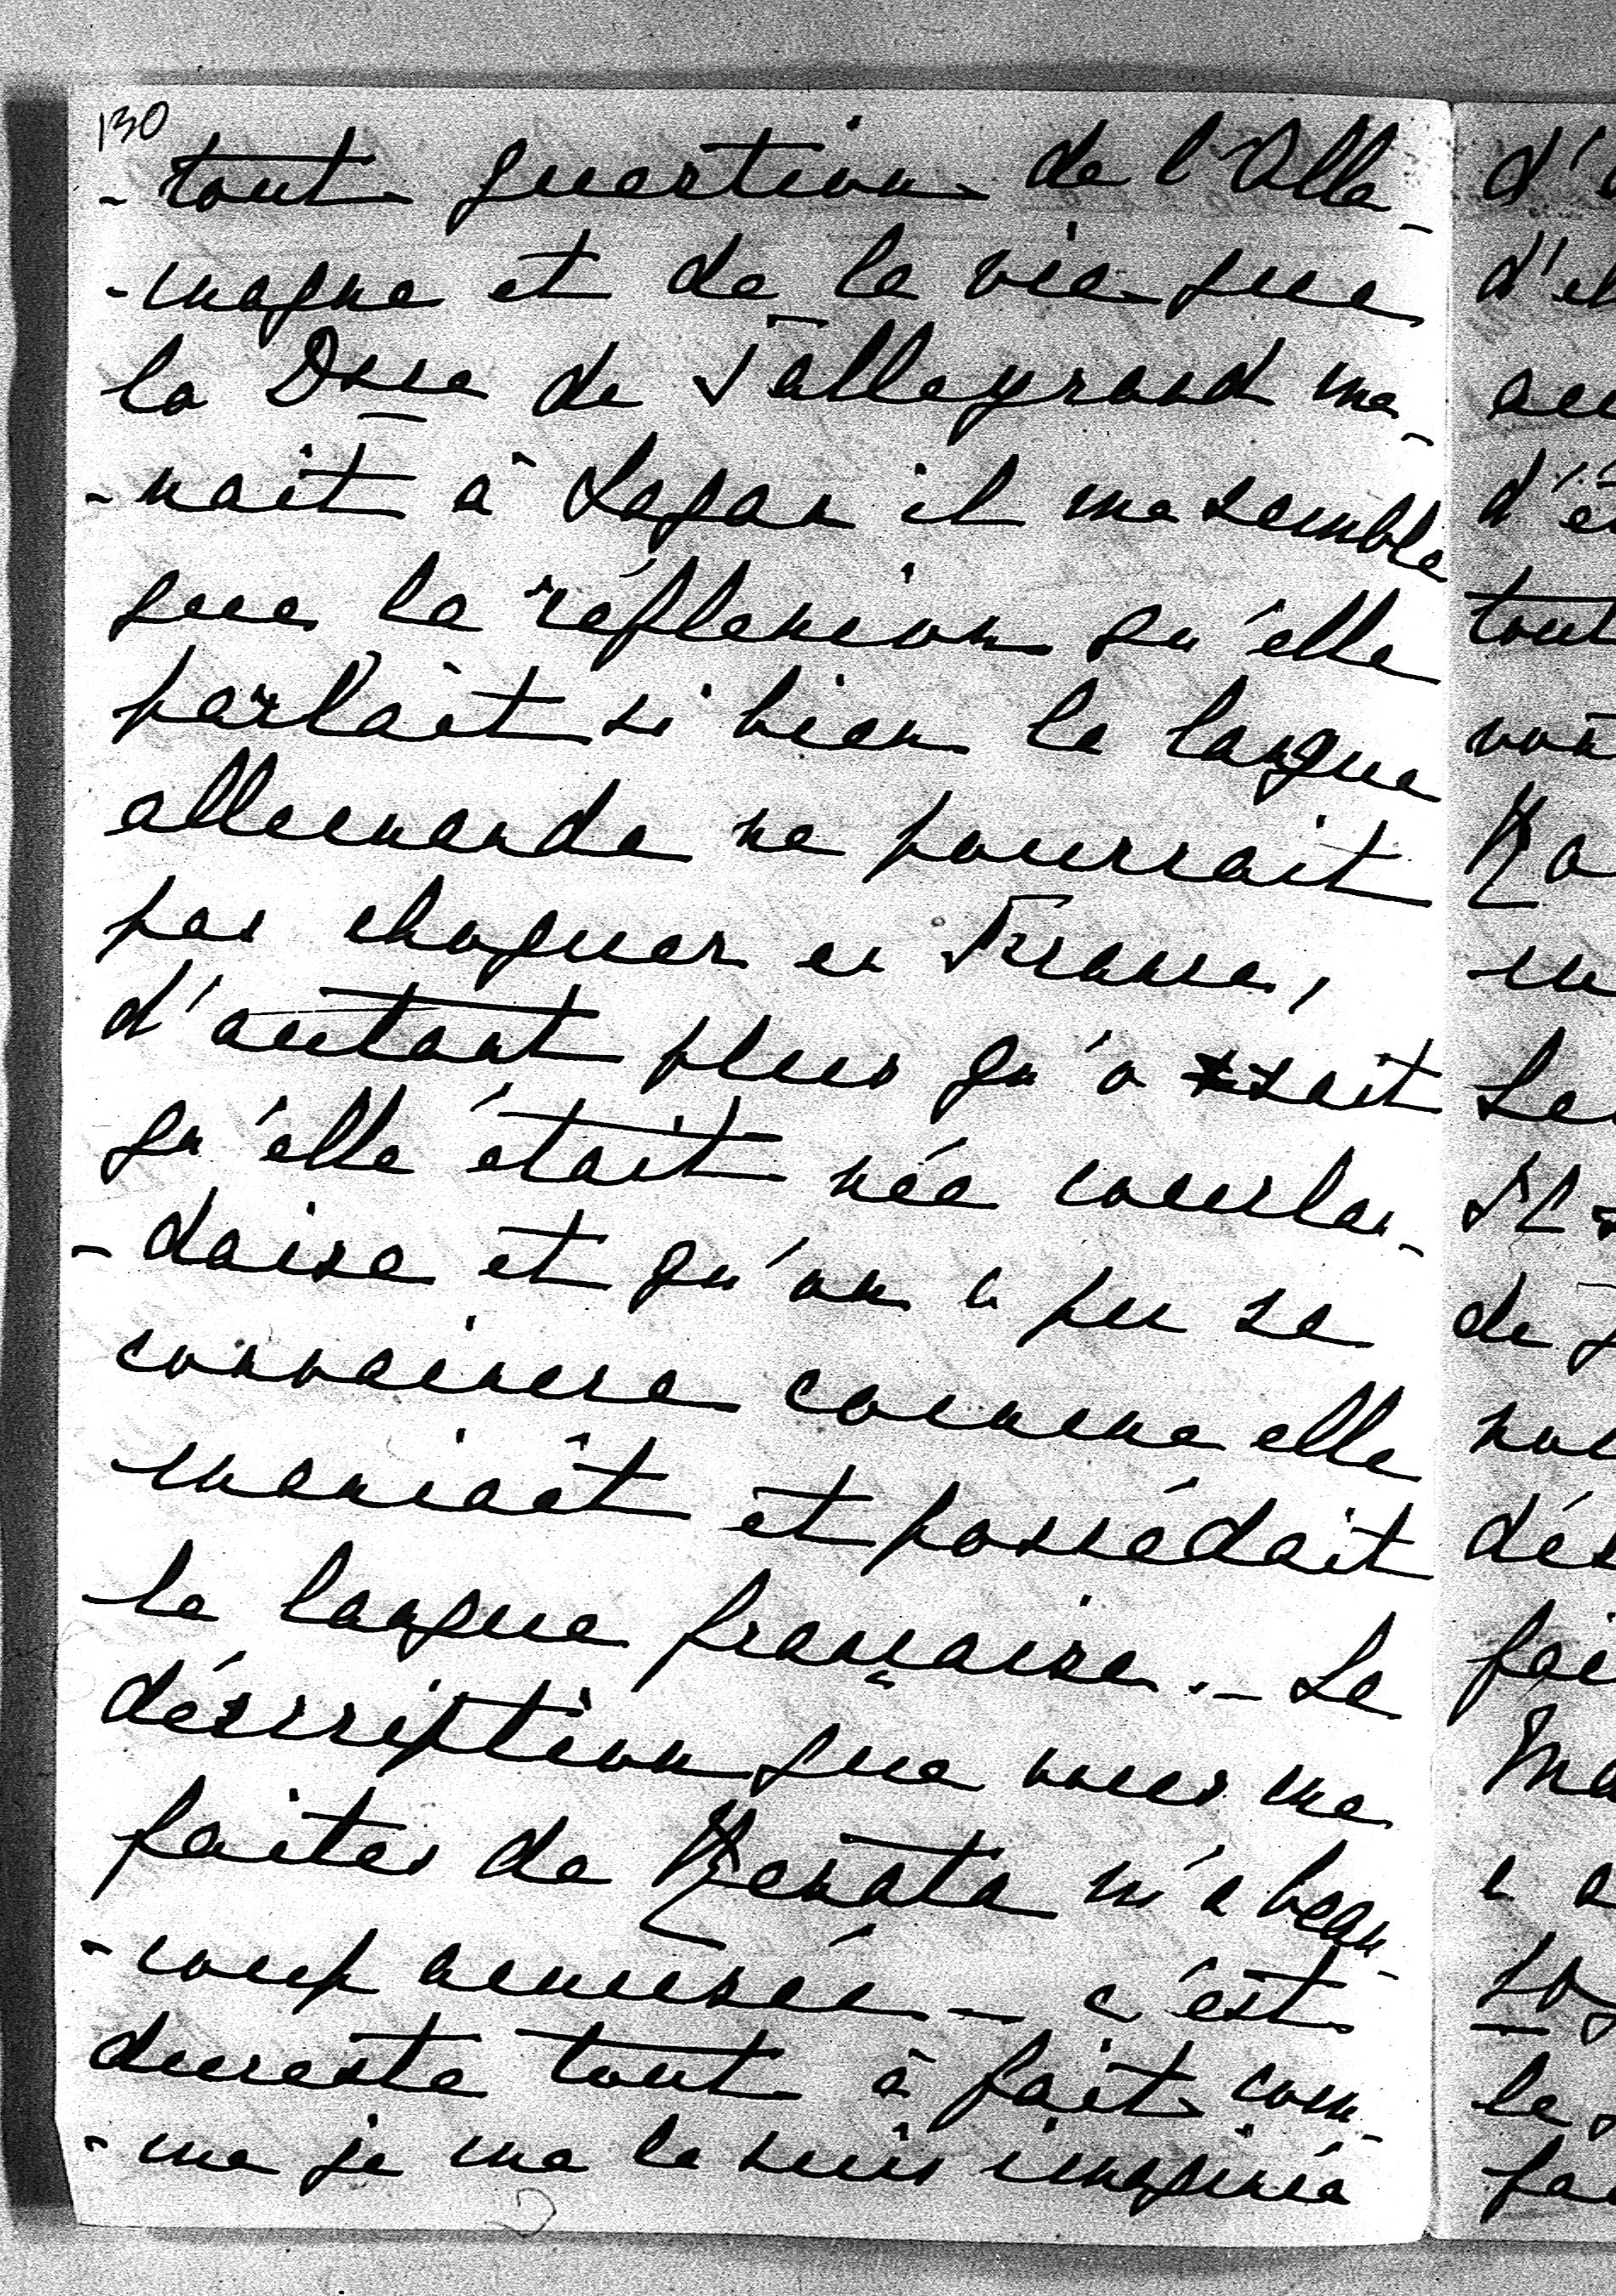 130
-tout question de l'Alle-
-magne et de la vie que
la Dsse de Talleyrand me-
-nait à Sagan il me semble
que la réflexion qu'elle
parlait si bien la langue
allemande ne pourrait
pas choquer en France,
d'autant plus qu'o sait
qu'elle était née courlan-
-daise et qu'on a pu se
convaincre comme elle
maniait et possédait
la langue française. - La
déscription que vous me
faites de Renata m'a beau-
-coup amusée - c'est
dureste tout à fait com-
-me je me la suis imaginée
d'
d'el
tout
de
dés
fai
le